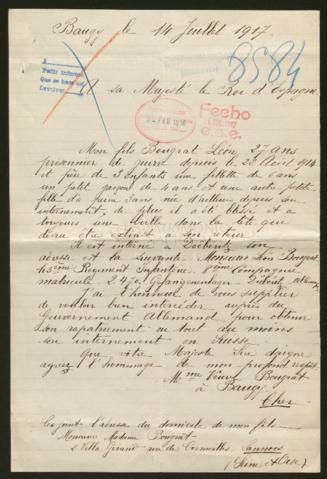 Baugy le 14 Juillet 1917
8584
A sa Majesté le Roi d'Espagne
Fecho
Mon fils Bougrat Léon 27 ans
prisonnier de guerre depuis le 28 Août 1914
et père de 3 Enfants une fillette de 6 ans
un petit garçon de 4 ans et une autre petite
fille de deux ans née d'ailleurs depuis son
internement, de plus il a été blessé et a
toujours une balle dans la tête qui
devra être extrait à son retour.
Il est interné à Döbeln son
adresse est la suivante Monsieur Léon Bougrat
Régiment Infanterie 8ème Compagnie
matricule Gefangenenlager
J'ai l'honneur de vous supplier
de vouloir bien intercéder auprès du
Gouvernement Allemand pour obtenir
son rapatriement ou tout du moins
son internement en Suisse
Que votre Majesté Sire daigne
agréer l'hommage de mon profond respect
Mme Veuve Bougrat
à Baugy
Cher
Ci joint l'adresse du domicile de mon fils
Monsieur Madame Bougrat
2 Villa Girard rue de Cormeilles Sannois
(Seine et Oise)